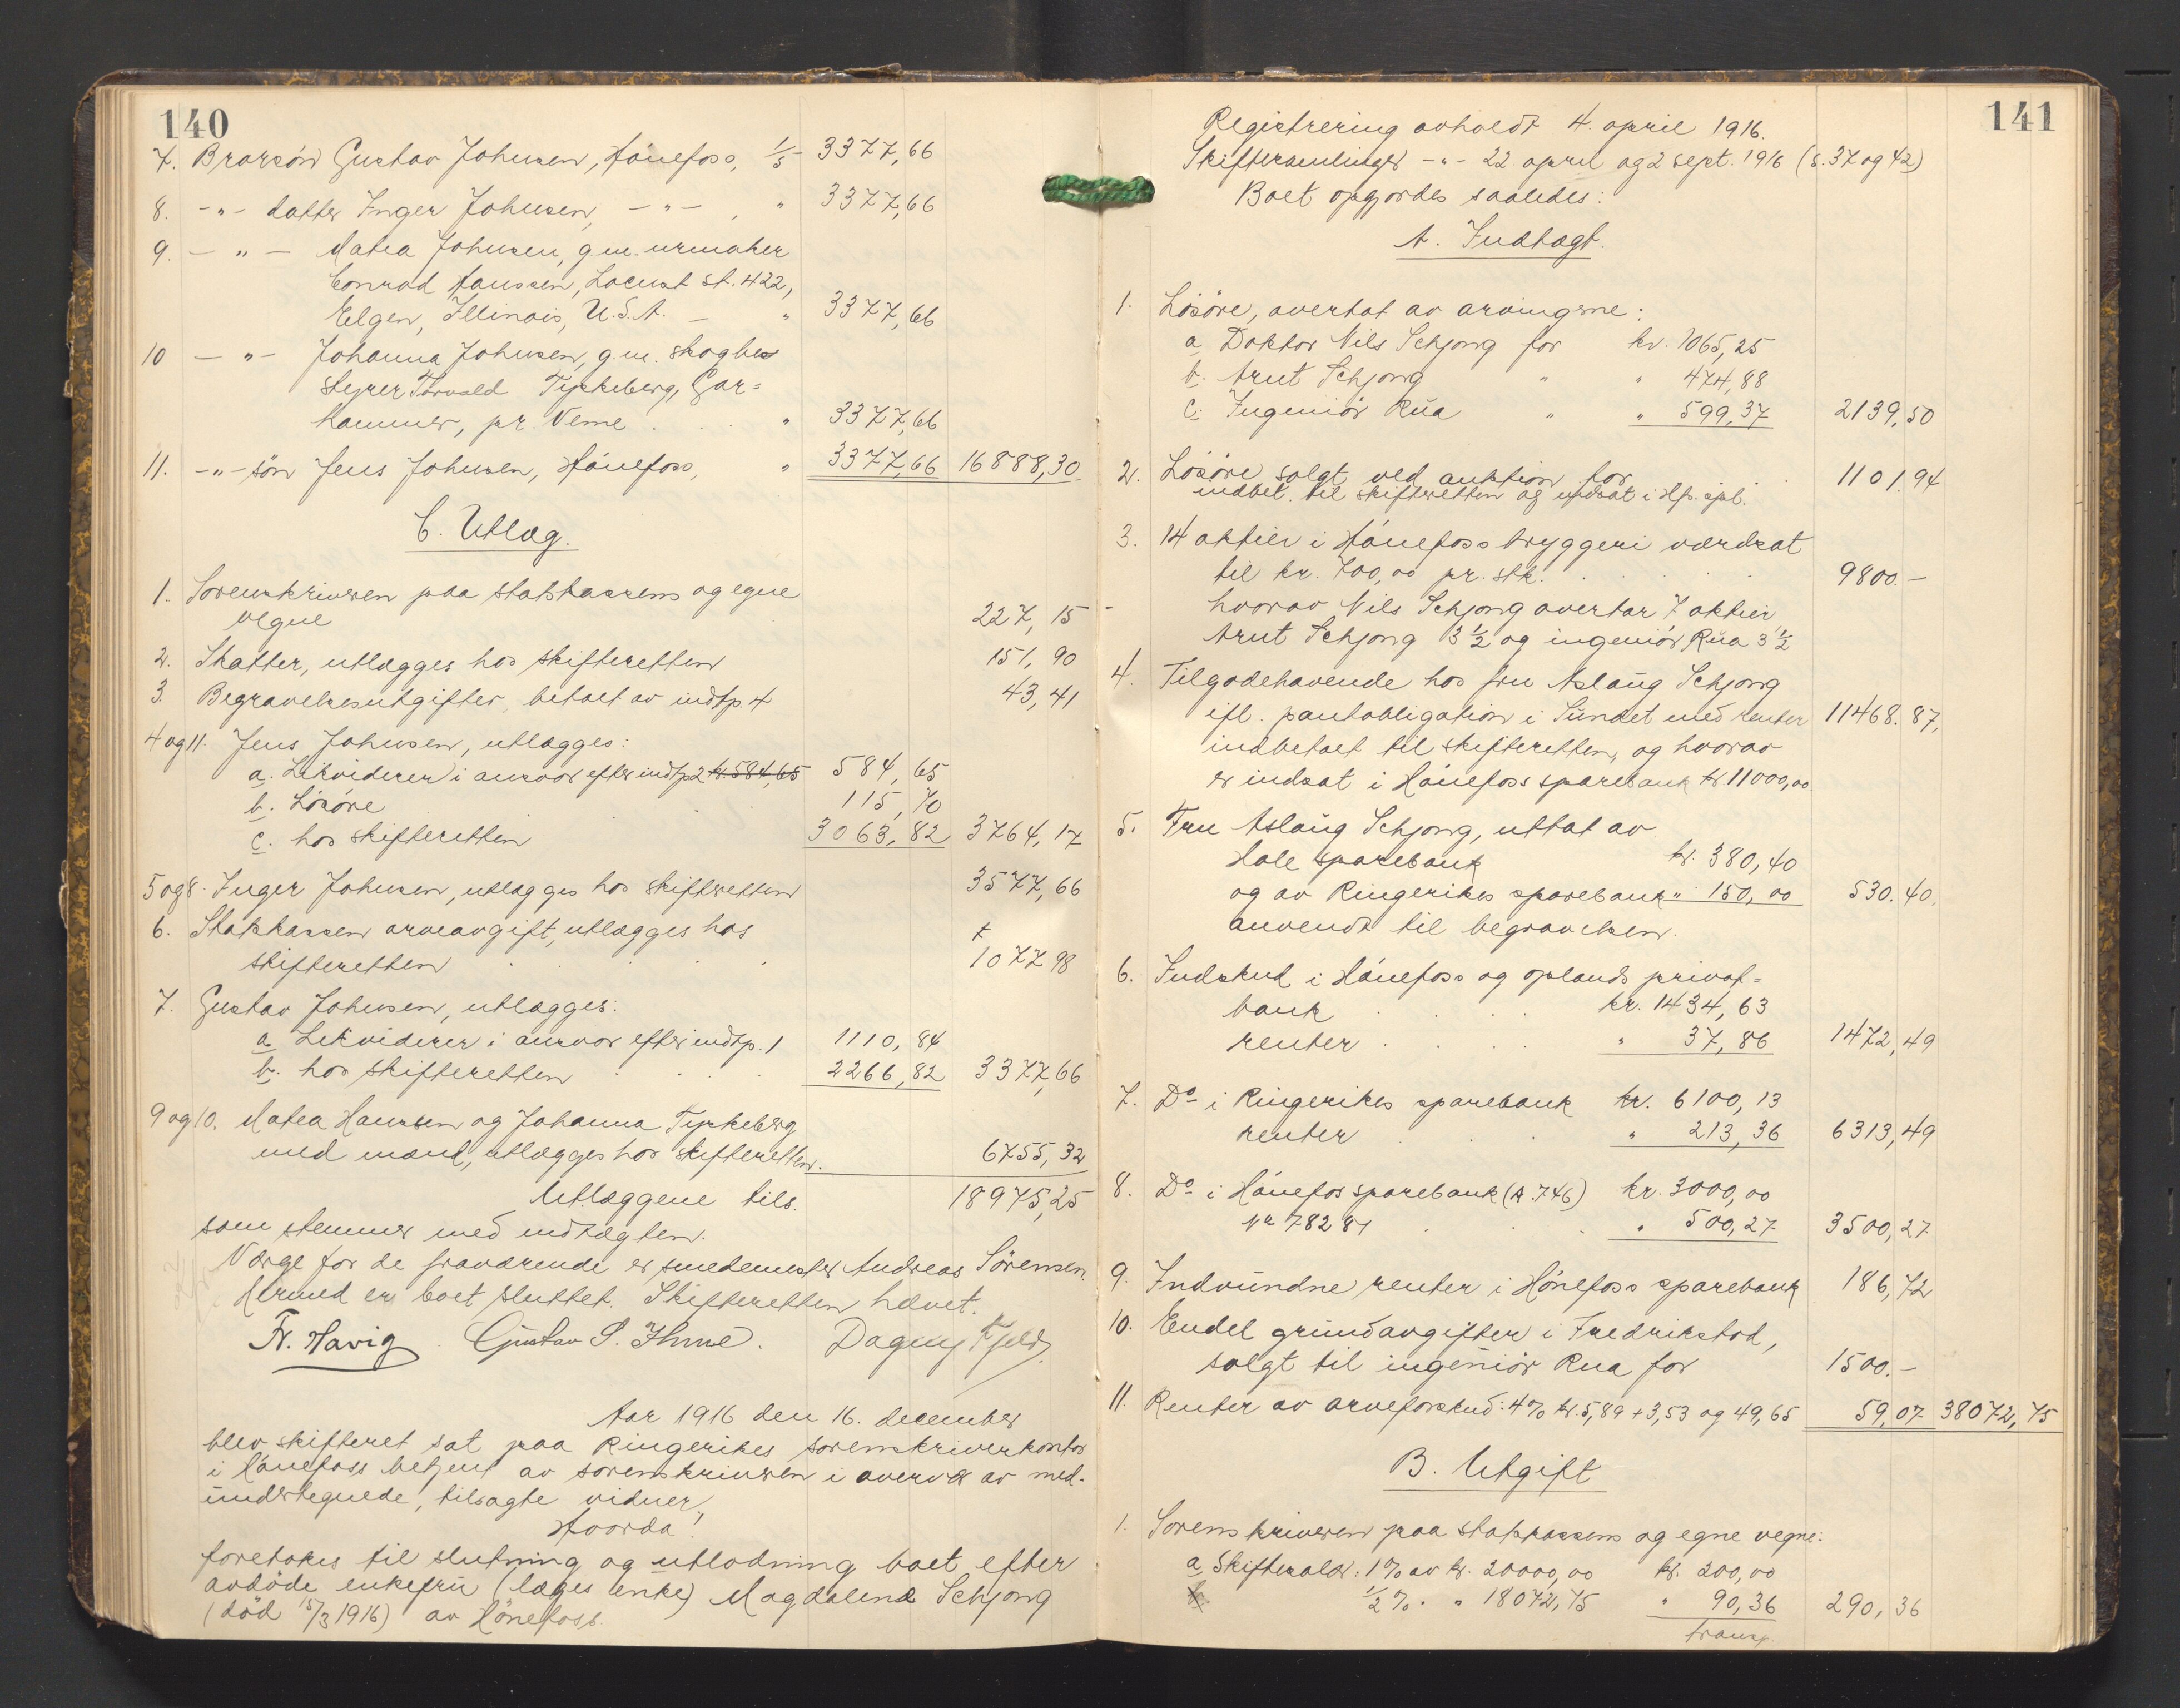 140
7. Brorsøn Gustav Johnsen, Hönefoss, 1/5 - 3377,66
8. -"- datter Inger Johnsen, -"- , " 3377,66
9. - " - Matea Johnsen, g.m. urmaker
Conrad Hanssen, Locust st. 422,
Elgen, Illinois, U.S.A. - " 3377,66
10 - " - Johanna Johnsen, g.m. skogbe
styrer Torvald Tyskeberg, Gar=
hammer, pr. Veme . . . " 3377,66
11. -"- søn Jens Johnsen, Hönefoss, " 3377,66 16888,30.
C. Utlæg.
1. Sorenskriveren paa statskassens og egne
vegne 227,15
2. Skatter, utlægges hos skifteretten 151,90
3. Begravelsesutgifter, betalt av indtp. 4 43,41
4 og 11. Jens Johnsen, utlægges:
a. Likviderer i ansvar efter indtp 2 kr. 584,65 584,65
b. Lösöre 115,70
c. hos skifteretten 3063,82 3764,17
5 og 8. Inger Johnsen, utlægges hos skifteretten 3577,66
6. Statskassen arveavgift, utlægges hos
skifteretten 1077 98
7. Gustav Johnsen, utlægges:
a. Likviderer i ansvar efter indtp. 1 1110,84
b. hos skifteretten 2266,82 3377,66
9 og 10. Matea Hanssen og Johanna Tyskeberg
med mænd, utlægges hos skifteretten. 6755,32
Utlæggene tils. 18975,25
som stemmer med indtægten.
Værge for de fraværende er smedemester Andreas Sörensen.
Hermed er boet sluttet. Skifteretten hævet.
Fr. Havig. Gustav S. Ihme. Dagny Fjeld.
Aar 1916 den 16. december
blev skifteret sat paa Ringerikes sorenskriverkontor
i Hönefoss betjent av sorenskriveren i overvær av med-
undertegnede, tilsagte vidner,
Hvorda!
foretokes til slutning og utlodning boet efter
avdöde enkefru (læges enke) Magdalene Schjong
(död 15/3 1916) av Hönefoss.
141
Registrering avholdt 4. april 1916.
Skiftesamlinger -"- 22. april og 2 sept. 1916 (s. 37 og 42)
Boet opgjordes saaledes:
A. Indtægt.
1. Lösöre, overtat av arvingerne:
a Doktor Nils Schjong for kr. 1065,25
b. Knut Schjong " " 474,88
c. Ingeniör Rua " " 599,37 2139,50
2. Lösöre solgt ved auktion for 1101.94
indbet. til skifteretten og indsat i Hf. spb.
3. 14 aktier i Hönefoss bryggeri værdsat
til kr. 700,00 pr. stk. . . . 9800.-
hvorav Nils Schjong overtar 7 aktier
Knut Schjong 3 1/2 og ingeniör Rua 3 1/2
4. Tilgodehavende hos fru Aslaug Schjong
ifl. pantobligation i Sundet med renter 11468.87,
indbetalt til skifteretten, og hvorav
er indsat i Hönefoss sparebank kr. 11000,00
5. Fru Aslaug Schjong, uttat av
Hole sparebank kr. 380,40
og av Ringerikes sparebank " 150,00 530.40.
anvendt til begravelsen.
6. Indskud i Hönefoss og oplands privat=
bank . . . . kr. 1434,63
renter . . . . " 37,86 1472,49
7. Do i Ringerikes sparebank kr. 6100,13
renter . . . " 213,36 6313,49
8. Do i Hönefos sparebank (A. 746) kr. 3000,00
No 78281 . . . " 500,27 3500,27
9. Indvundne renter i Hönefoss sparebank 186,72
10. Endel grundavgifter i Fredrikstad,
solgt til ingeniör Rua for 1500.-
11. Renter av arveforskud: 4% kr. 5,89 + 3,53 og 49,65 59,07 38072,75
B. Utgift
1. Sorenskriveren paa statskassens og egne vegne:
a Skiftesalær: 1% av kr. 20000,00 kr. 200,00
1/2 % " " 18072,75 " 90,36 290,36
transp.